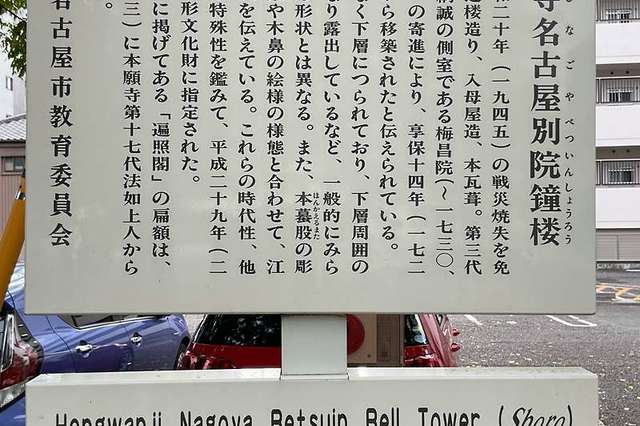 寺名古屋別院鐘楼
なごやべついんしょうろう
二十年（一九四五）の戦災焼失を免
楼造り、入母屋造、本瓦葺。第三代
綱誠の側室である梅昌院（～一七三〇、
の寄進により、享保十四年（一七二
ら移築されたと伝えられている。
く下層につられており、下層周囲の
り露出しているなど、一般的にみら
形状とは異なる。また、本蟇股の彫
ほんかえるまた
や木鼻の絵様の様態と合わせて、江
を伝えている。これらの時代性、他
特殊性を鑑みて、平成二十九年（二
形文化財に指定された。
に掲げてある「遍照閣」の扁額は、
三）に本願寺第十七代法如上人から
。
名古屋市教育委員会
Hongwanji Nagoya Betsuin Bell Tower (Shoro)